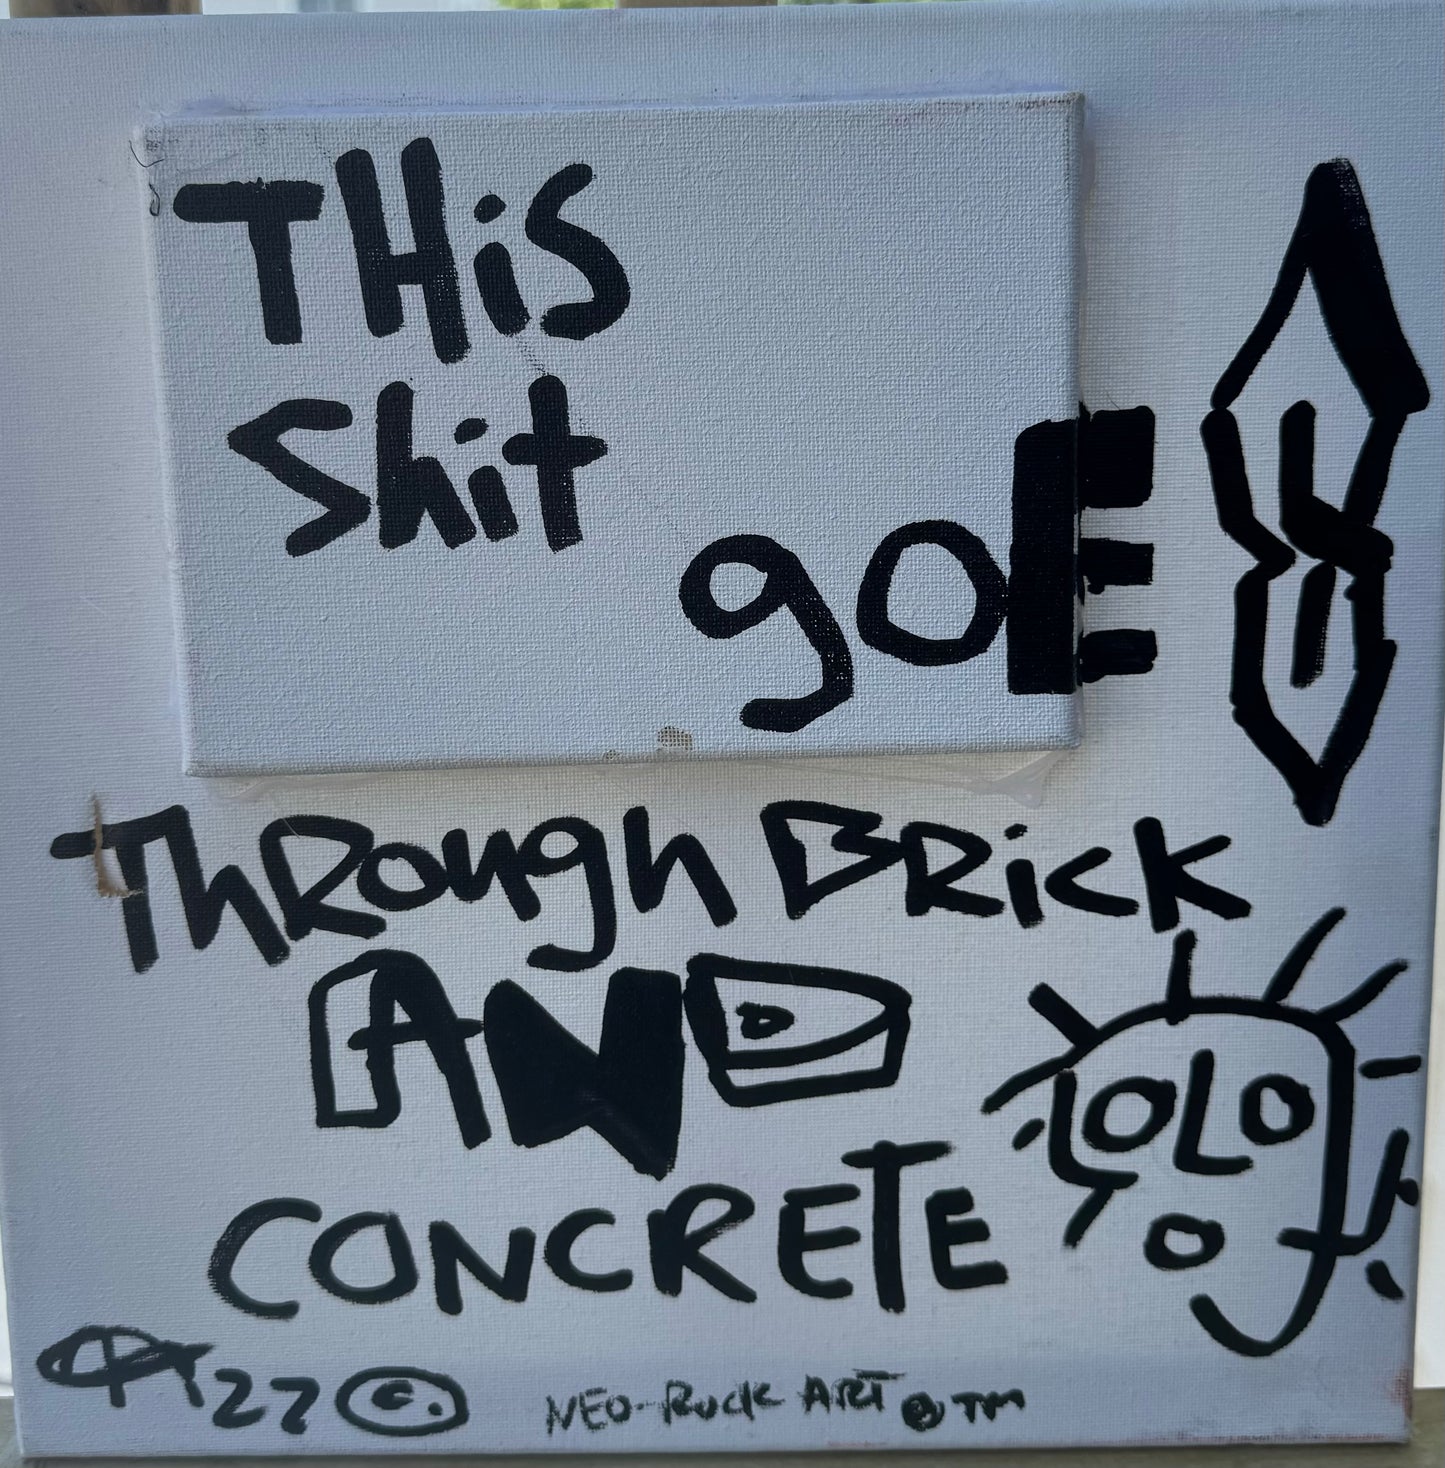 THiS
Shit
gOE
ThRough BRiCK
AND
CONCRETE
22 ©
NEO-ROCK ART ® TM